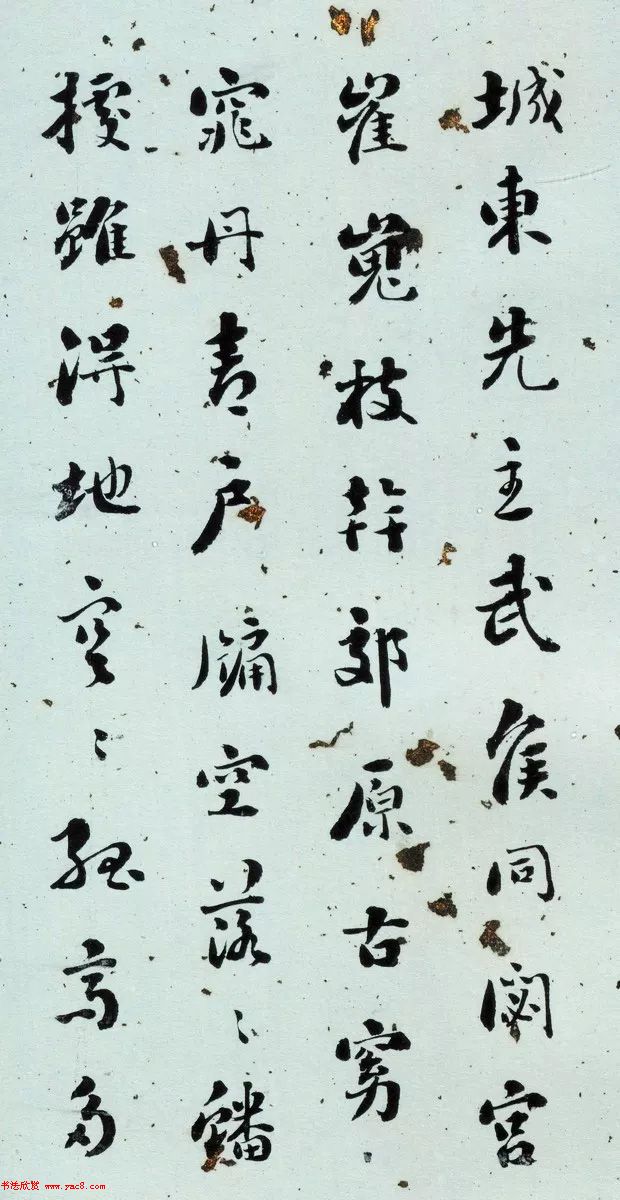 城東先主武侯同閟宮
崔嵬枝幹郊原古窈
窕丹青戶牖空落〻蟠
據雖得地冥〻孤高多
书法欣赏 www.yac8.com